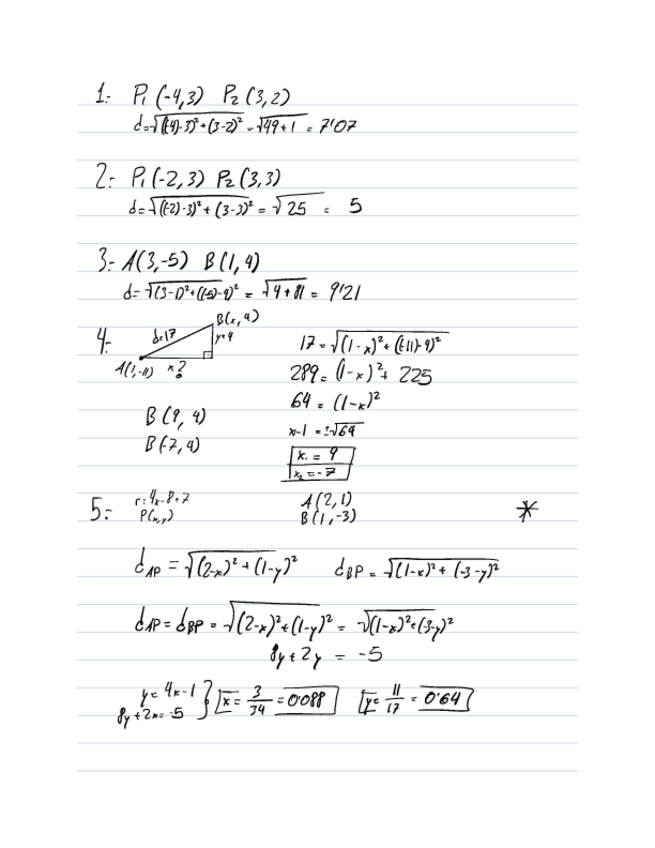 1:- P₁ (-4,3) P₂ (3,2)
d=√((-4)-3)²+(3-2)² = √49+1 = 7'07
2:- P₁(-2,3) P₂(3,3)
d=√((-2)-3)²+(3-3)² = √25 = 5
3:- A(3,-5) B(1,4)
d=√(3-1)²+((-5)-4)² = √4+81 = 9'21
4:-
B(x,4)
d=17
y=4
A(1,-11) x?
17=√(1-x)²+((-11)-4)²
289=(1-x)²+225
64=(1-x)²
x-1=±√64
x₁=9
x₂=-7
B(9,4)
B(-7,4)
5:-
P(x,y)
A(2,1)
B(1,-3)
*
dAP=√(2-x)²+(1-y)² dBP=√(1-x)²+(-3-y)²
dAP=dBP=√(2-x)²+(1-y)²=√(1-x)²+(-3-y)²
8y+2y=-5
y=4x-1
8y+2x=-5
x=3/34=0'088 y=11/17=0'64